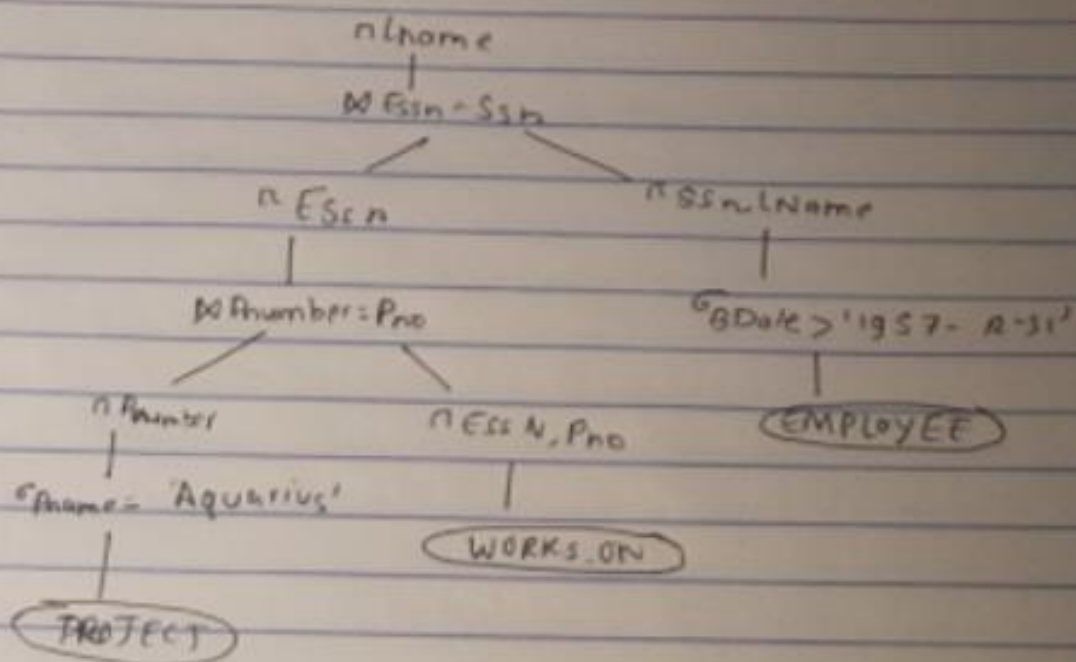 π Lname
⋈ Essn = Ssn
π Essn π Ssn, LName
⋈ Pnumber = Pno σ BDate > '1957-12-31'
π Pnumber π EssN, Pno EMPLOYEE
σ Pname = 'Aquarius'
WORKS_ON
PROJECT